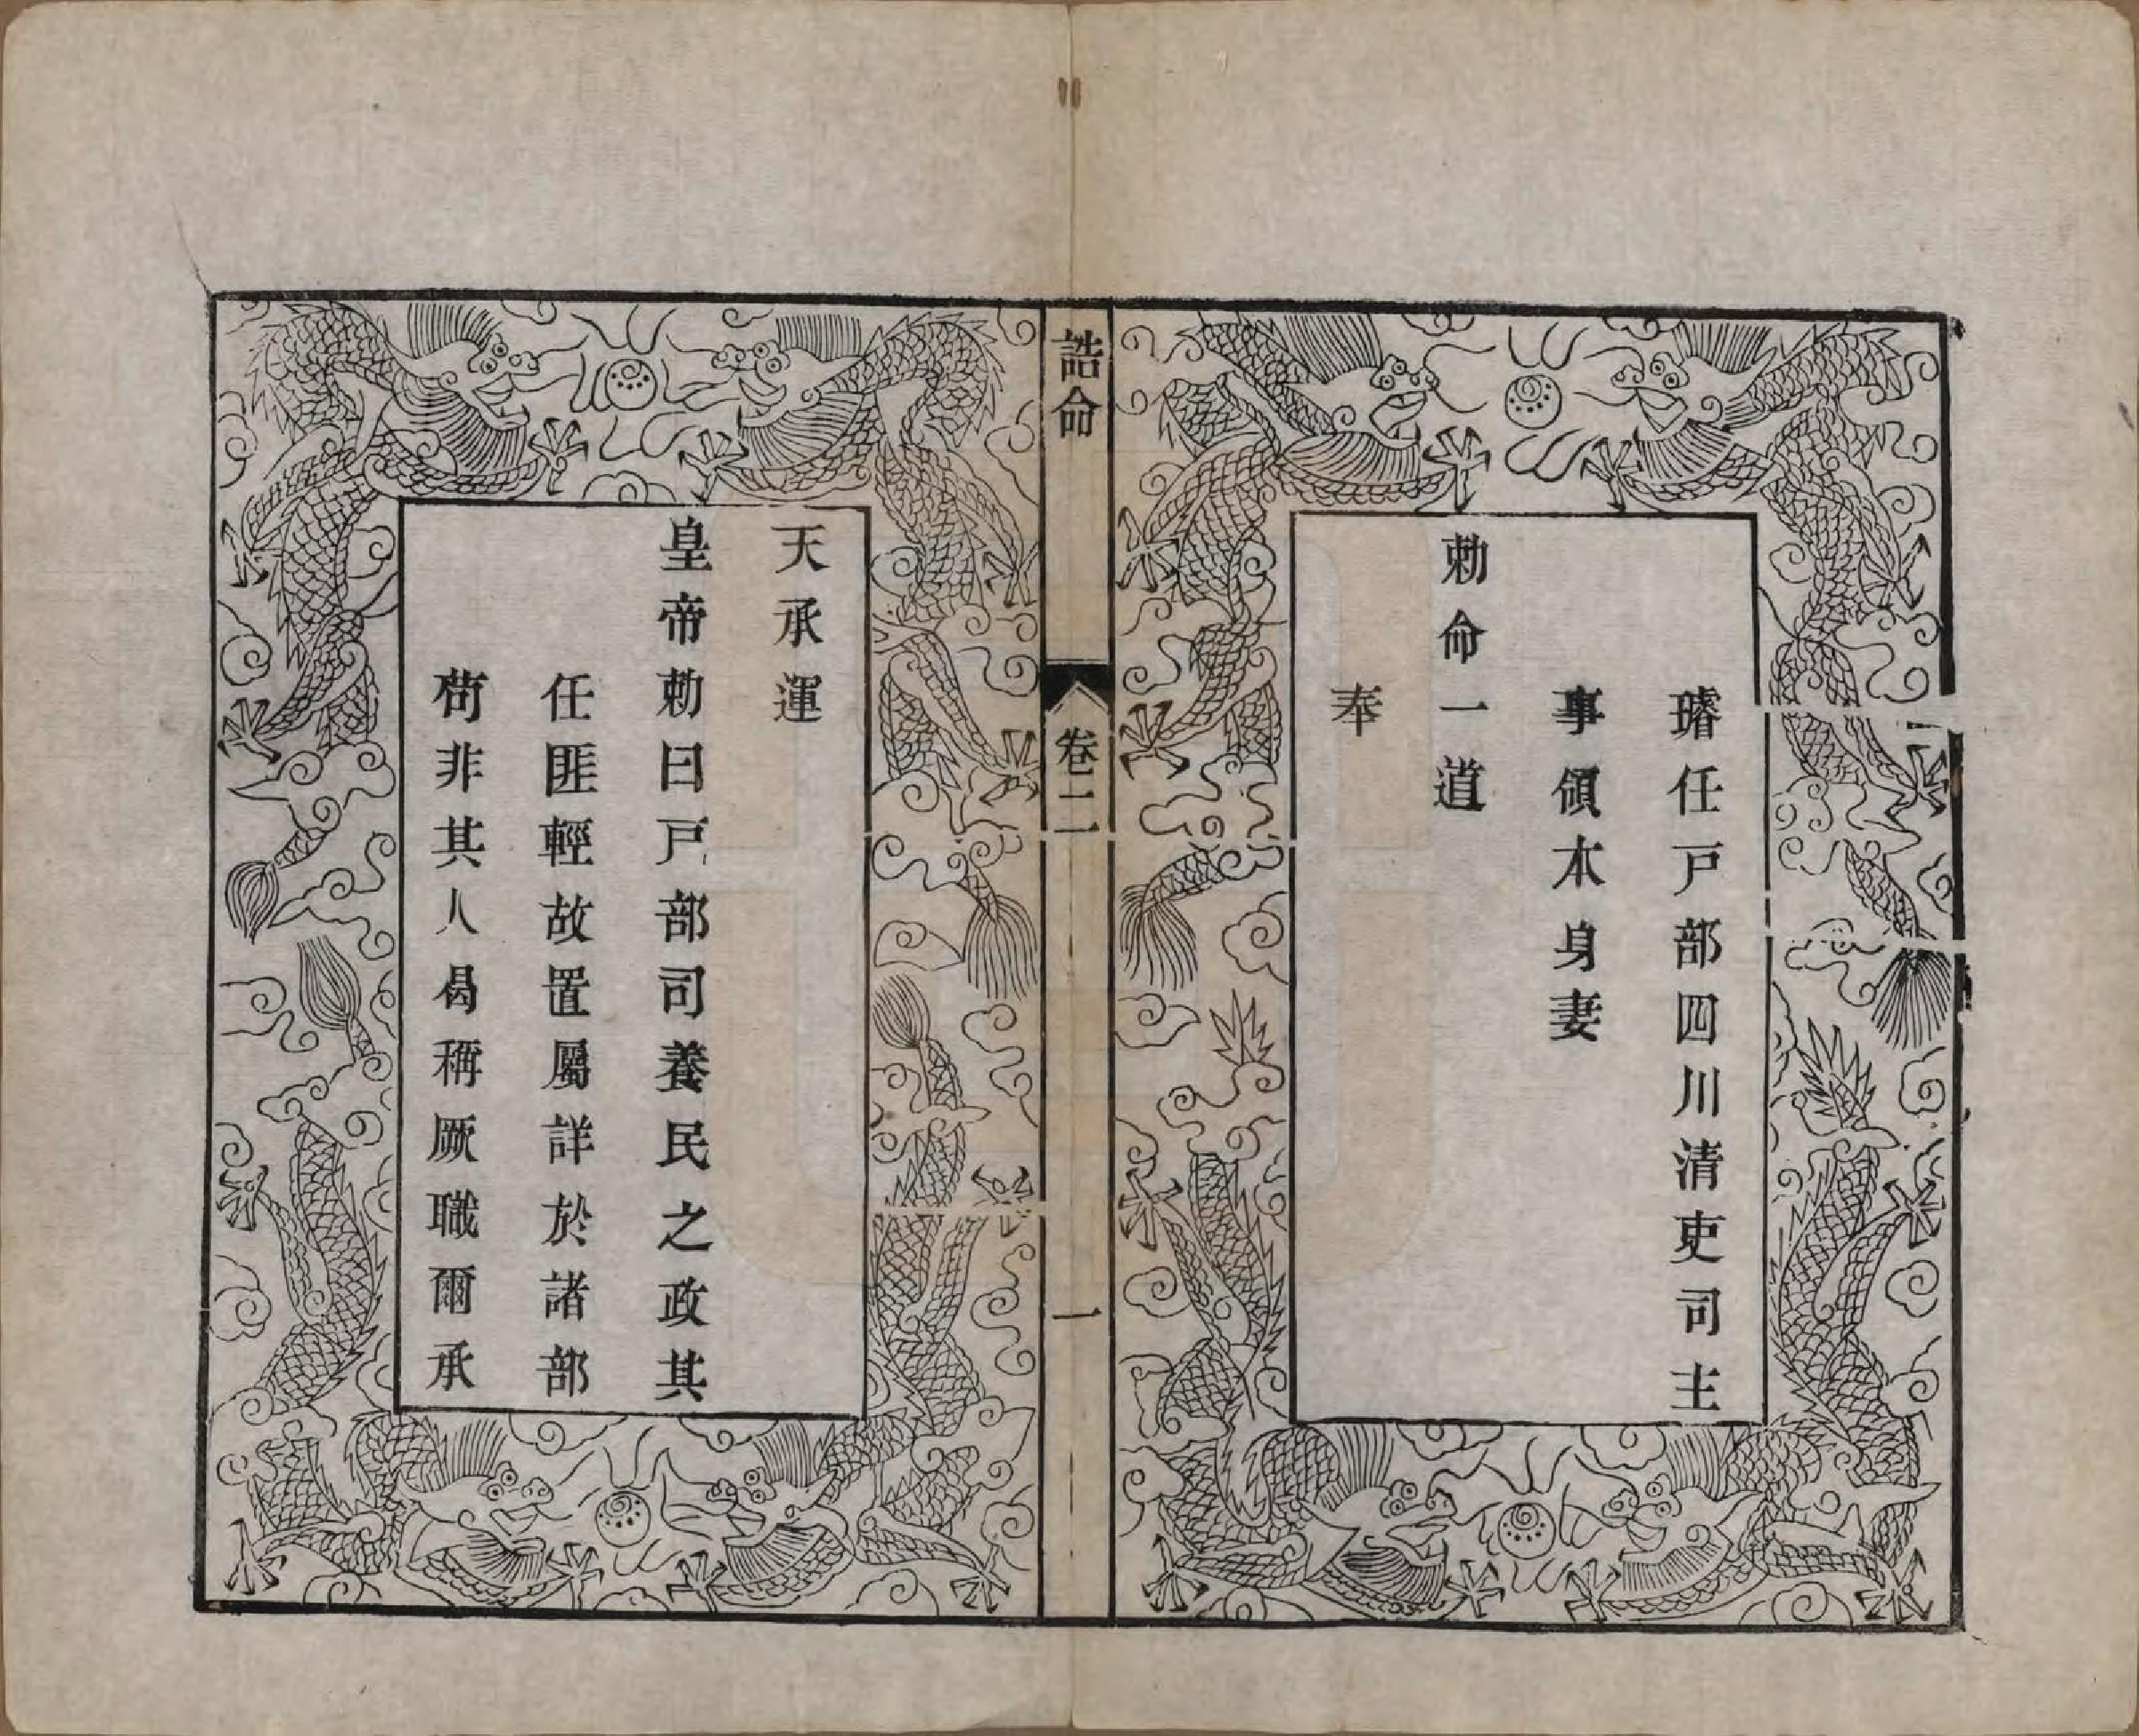 璿任戸部四川清吏司主
事領本身妻
勅命一道
奉
誥命
卷二
一
天承運
皇帝勅曰戸部司養民之政其
任匪輕故置屬詳於諸部
苟非其人曷稱厥職爾承